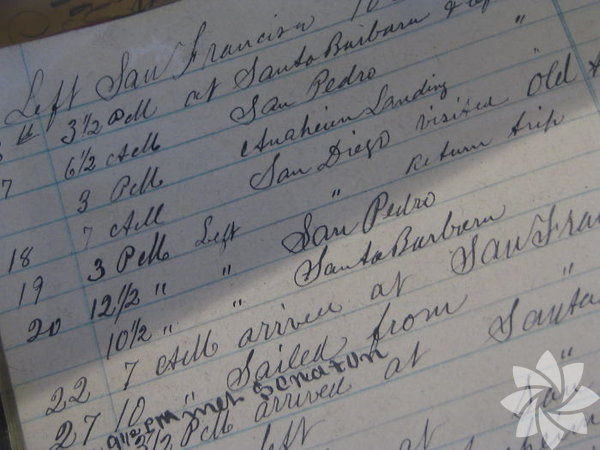 Left San Francisco 10
" 3½ PM at Santa Barbara &
7 6½ AM San Pedro "
3 PM Anaheim Landing "
18 7 AM San Diego visited Old
19 3 PM Left " Return trip
20 12½ " " San Pedro
10½ " " Santa Barbara
22 7 AM arrived at San Fran
27 10 " Sailed from "
9½ PM met Senator
3½ PM arrived at Santa
left "
at